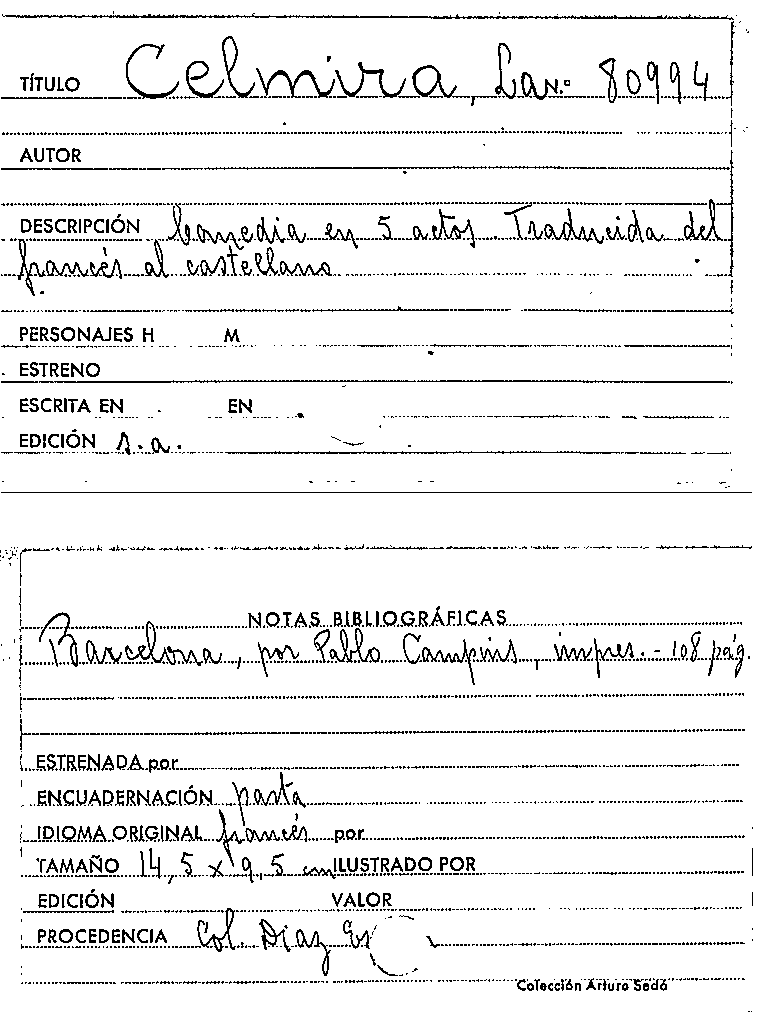 TÍTULO Celmira, La N.º 80994
AUTOR
DESCRIPCIÓN Comedia en 5 actos. Traducida del
francés al castellano
PERSONAJES H M
ESTRENO
ESCRITA EN EN
EDICIÓN s.a.
NOTAS BIBLIOGRÁFICAS
Barcelona, por Pablo Campins, impres. - 108 pág.
ESTRENADA por
ENCUADERNACIÓN pasta
IDIOMA ORIGINAL francés por
TAMAÑO 14,5 x 9,5 cm ILUSTRADO POR
EDICIÓN VALOR
PROCEDENCIA Col. Díaz
Colección Arturo Sedó